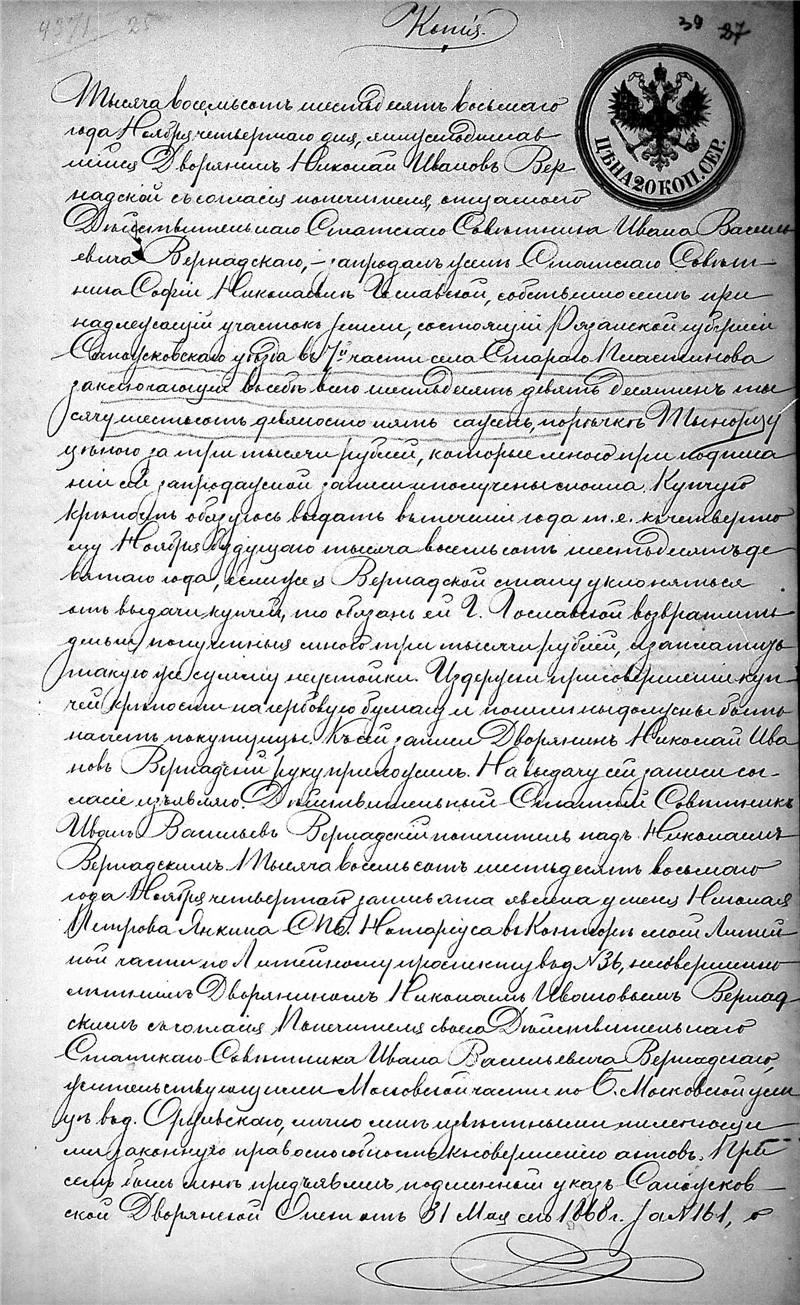 4371 25
Копія.
39 27
ЦѢНА 20 КОП. СЕР.
Тысяча восемьсотъ шестьдесятъ восьмаго
года Ноября четвертаго дня, я нижеподписав
шійся Дворянинъ Николай Ивановъ Вер
надской съ согласія попечителя, отца моего
Дѣйствительнаго Статскаго Совѣтника Ивана Василь
евича Вернадскаго, – запродалъ женѣ Статскаго Совѣт-
ника Софіи Николаевнѣ Гославской, собственно мнѣ при
надлежащій участокъ земли, состоящій Рязанской губерніи
Сапожковскаго уѣзда въ 7й части села Стараго Пластикова
заключающій въ себѣ всего шестьдесятъ девять десятинъ ты
сячу шестьсотъ девяносто пять сажень, по рѣчкѣ Тынорзу
цѣною за три тысячи рублей, которые мною при подписа
ніи сей запродажной записи и получены сполна. Купчую
крѣпость обязуюсь выдать въ теченіи года т.е. къ четверто
му Ноября будущаго тысяча восемьсотъ шестьдесятъ де
вятаго года, если же я Вернадской стану уклоняться
отъ выдачи купчей, то обязанъ ей Г. Гославской возвратить
деньги полученныя мною три тысячи рублей, и заплатить
такую же сумму неустойки. Издержки при совершеніи куп-
чей крѣпости на гербовую бумагу и пошлины должны быть
на счетъ покупщицы. Къ сей записи Дворянинъ Николай Ива
новъ Вернадскій руку приложилъ. На выдачу сей записи со-
гласіе изъявляю. Дѣйствительный Статскій Совѣтникъ
Иванъ Васильевъ Вернадскій попечитель надъ Николаемъ
Вернадскимъ. Тысяча восемьсотъ шестьдесятъ восьмаго
года Ноября четвертаго запись эта явлена у меня Николая
Петрова Янкина СПб. Нотаріуса въ Конторѣ моей Литей
ной части по Литейному проспекту въ д № 36, несовершенно
лѣтнимъ Дворяниномъ Николаемъ Ивановымъ Вернад
скимъ съ согласія Попечителя своего Дѣйствительнаго
Статскаго Совѣтника Ивана Васильевича Вернадскаго,
жительствующими Московской части по Б. Московской ули
цѣ въ д. Оржевскаго, лично мнѣ извѣстными и имѣющи
ми законную правоспособность къ совершенію актовъ. При
семъ былъ мнѣ предъявленъ подлинный указъ Сапожков
ской Дворянской Опеки отъ 31 Мая сего 1868 г. за № 161, о